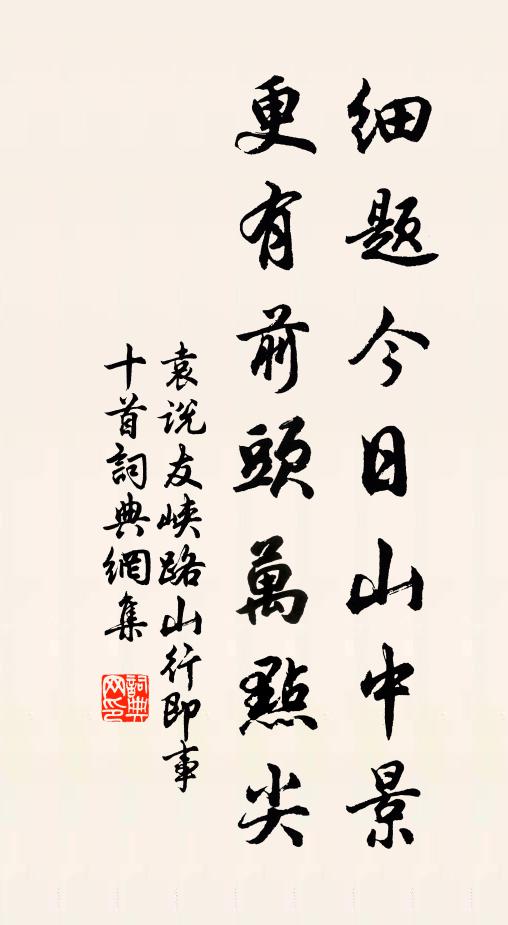 细题今日山中景
更有前頭萬點尖
袁说友峡路山行即事
十首詞典網集
詞典网印